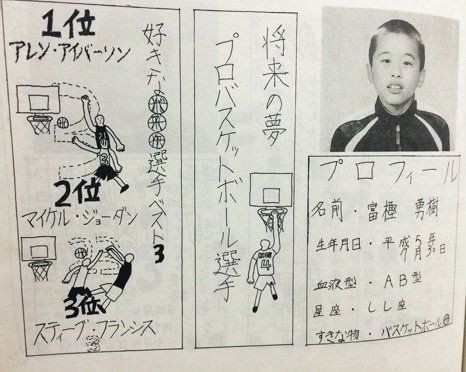 プロフィール
名前・富樫 勇樹
生年月日・平成5年7月30日
血液型・AB型
星座・しし座
すきな物・バスケットボール
将来の夢
プロバスケットボール選手
好きな選手ベスト3
1位
アレン・アイバーソン
2位
マイケル・ジョーダン
3位
スティーブ・フランシス